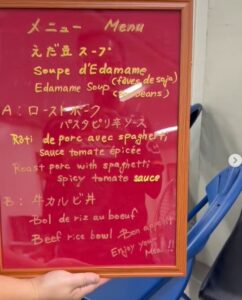 メニュー Menu
えだ豆 スープ
Soupe d'Edamame
(fèves de soja)
Edamame Soup (soybeans)
A: ローストポーク
パスタピリ辛ソース
Rôti de porc avec spaghetti
sauce tomate épicée
Roast pork with spaghetti
spicy tomato sauce
B: 牛カルビ丼
Bol de riz au boeuf
Beef rice bowl
Bon appétit
Enjoy your
Meal!!